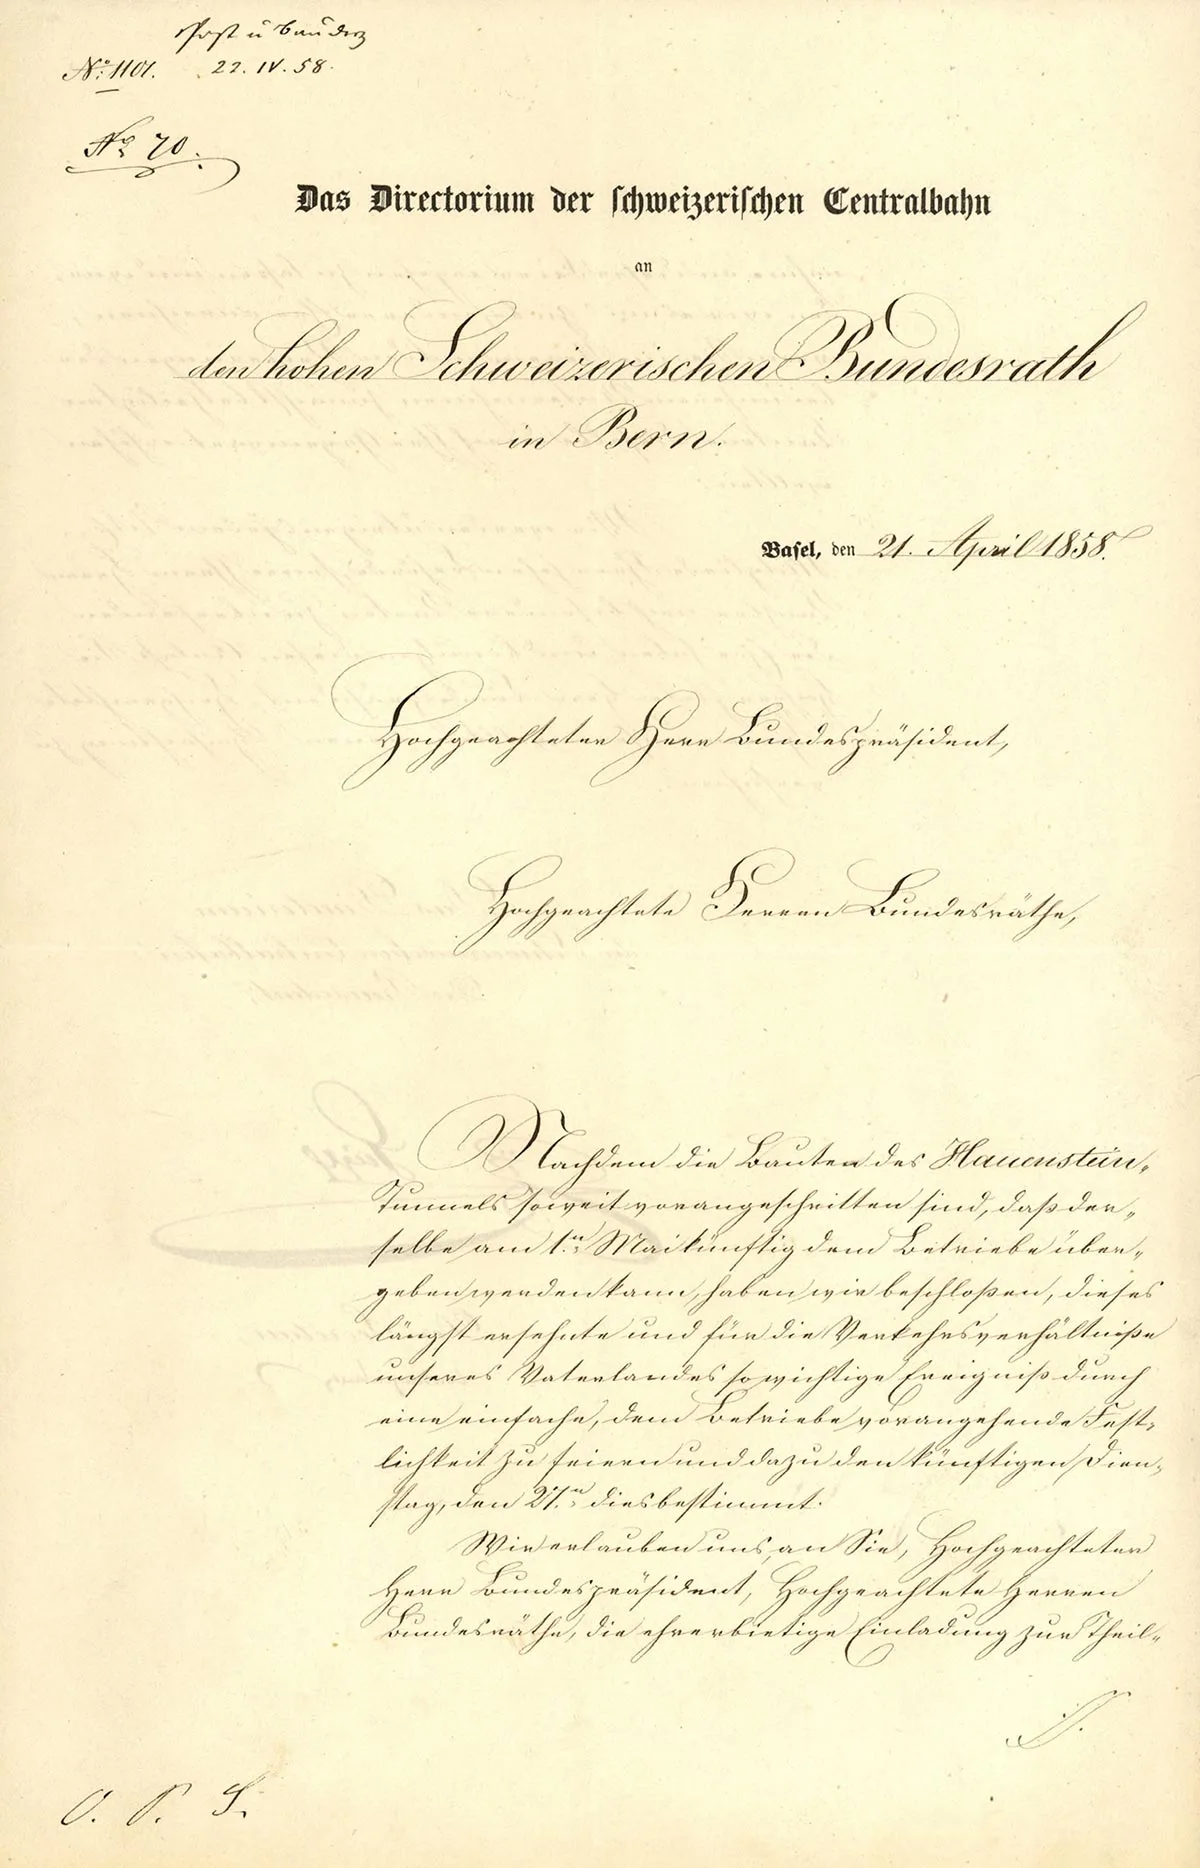 Post u Baudep
No. 1101. 22. IV. 58.
No. 70.
Das Directorium der schweizerischen Centralbahn
an
den hohen Schweizerischen Bundesrath
in Bern.
Basel, den 21. April 1858.
Hochgeachteter Herr Bundespräsident,
Hochgeachtete Herren Bundesräthe,
Nachdem die Bauten des Hauenstein-
Tunnels soweit vorangeschritten sind, daß der-
selbe am 1.n Mai künftig dem Betriebe über-
geben werden kann, haben wir beschloßen, dieses
längst ersehnte und für die Verkehrsverhältniße
unseres Vaterlandes so wichtige Ereigniß durch
eine einfache, dem Betriebe vorangehende Fest-
lichkeit zu feiern und dazu den künftigen Dien-
stag, den 27.n dies bestimmt.
Wir erlauben uns, an Sie, Hochgeachteter
Herr Bundespräsident, Hochgeachtete Herren
Bundesräthe, die ehrerbietige Einladung zur Theil-